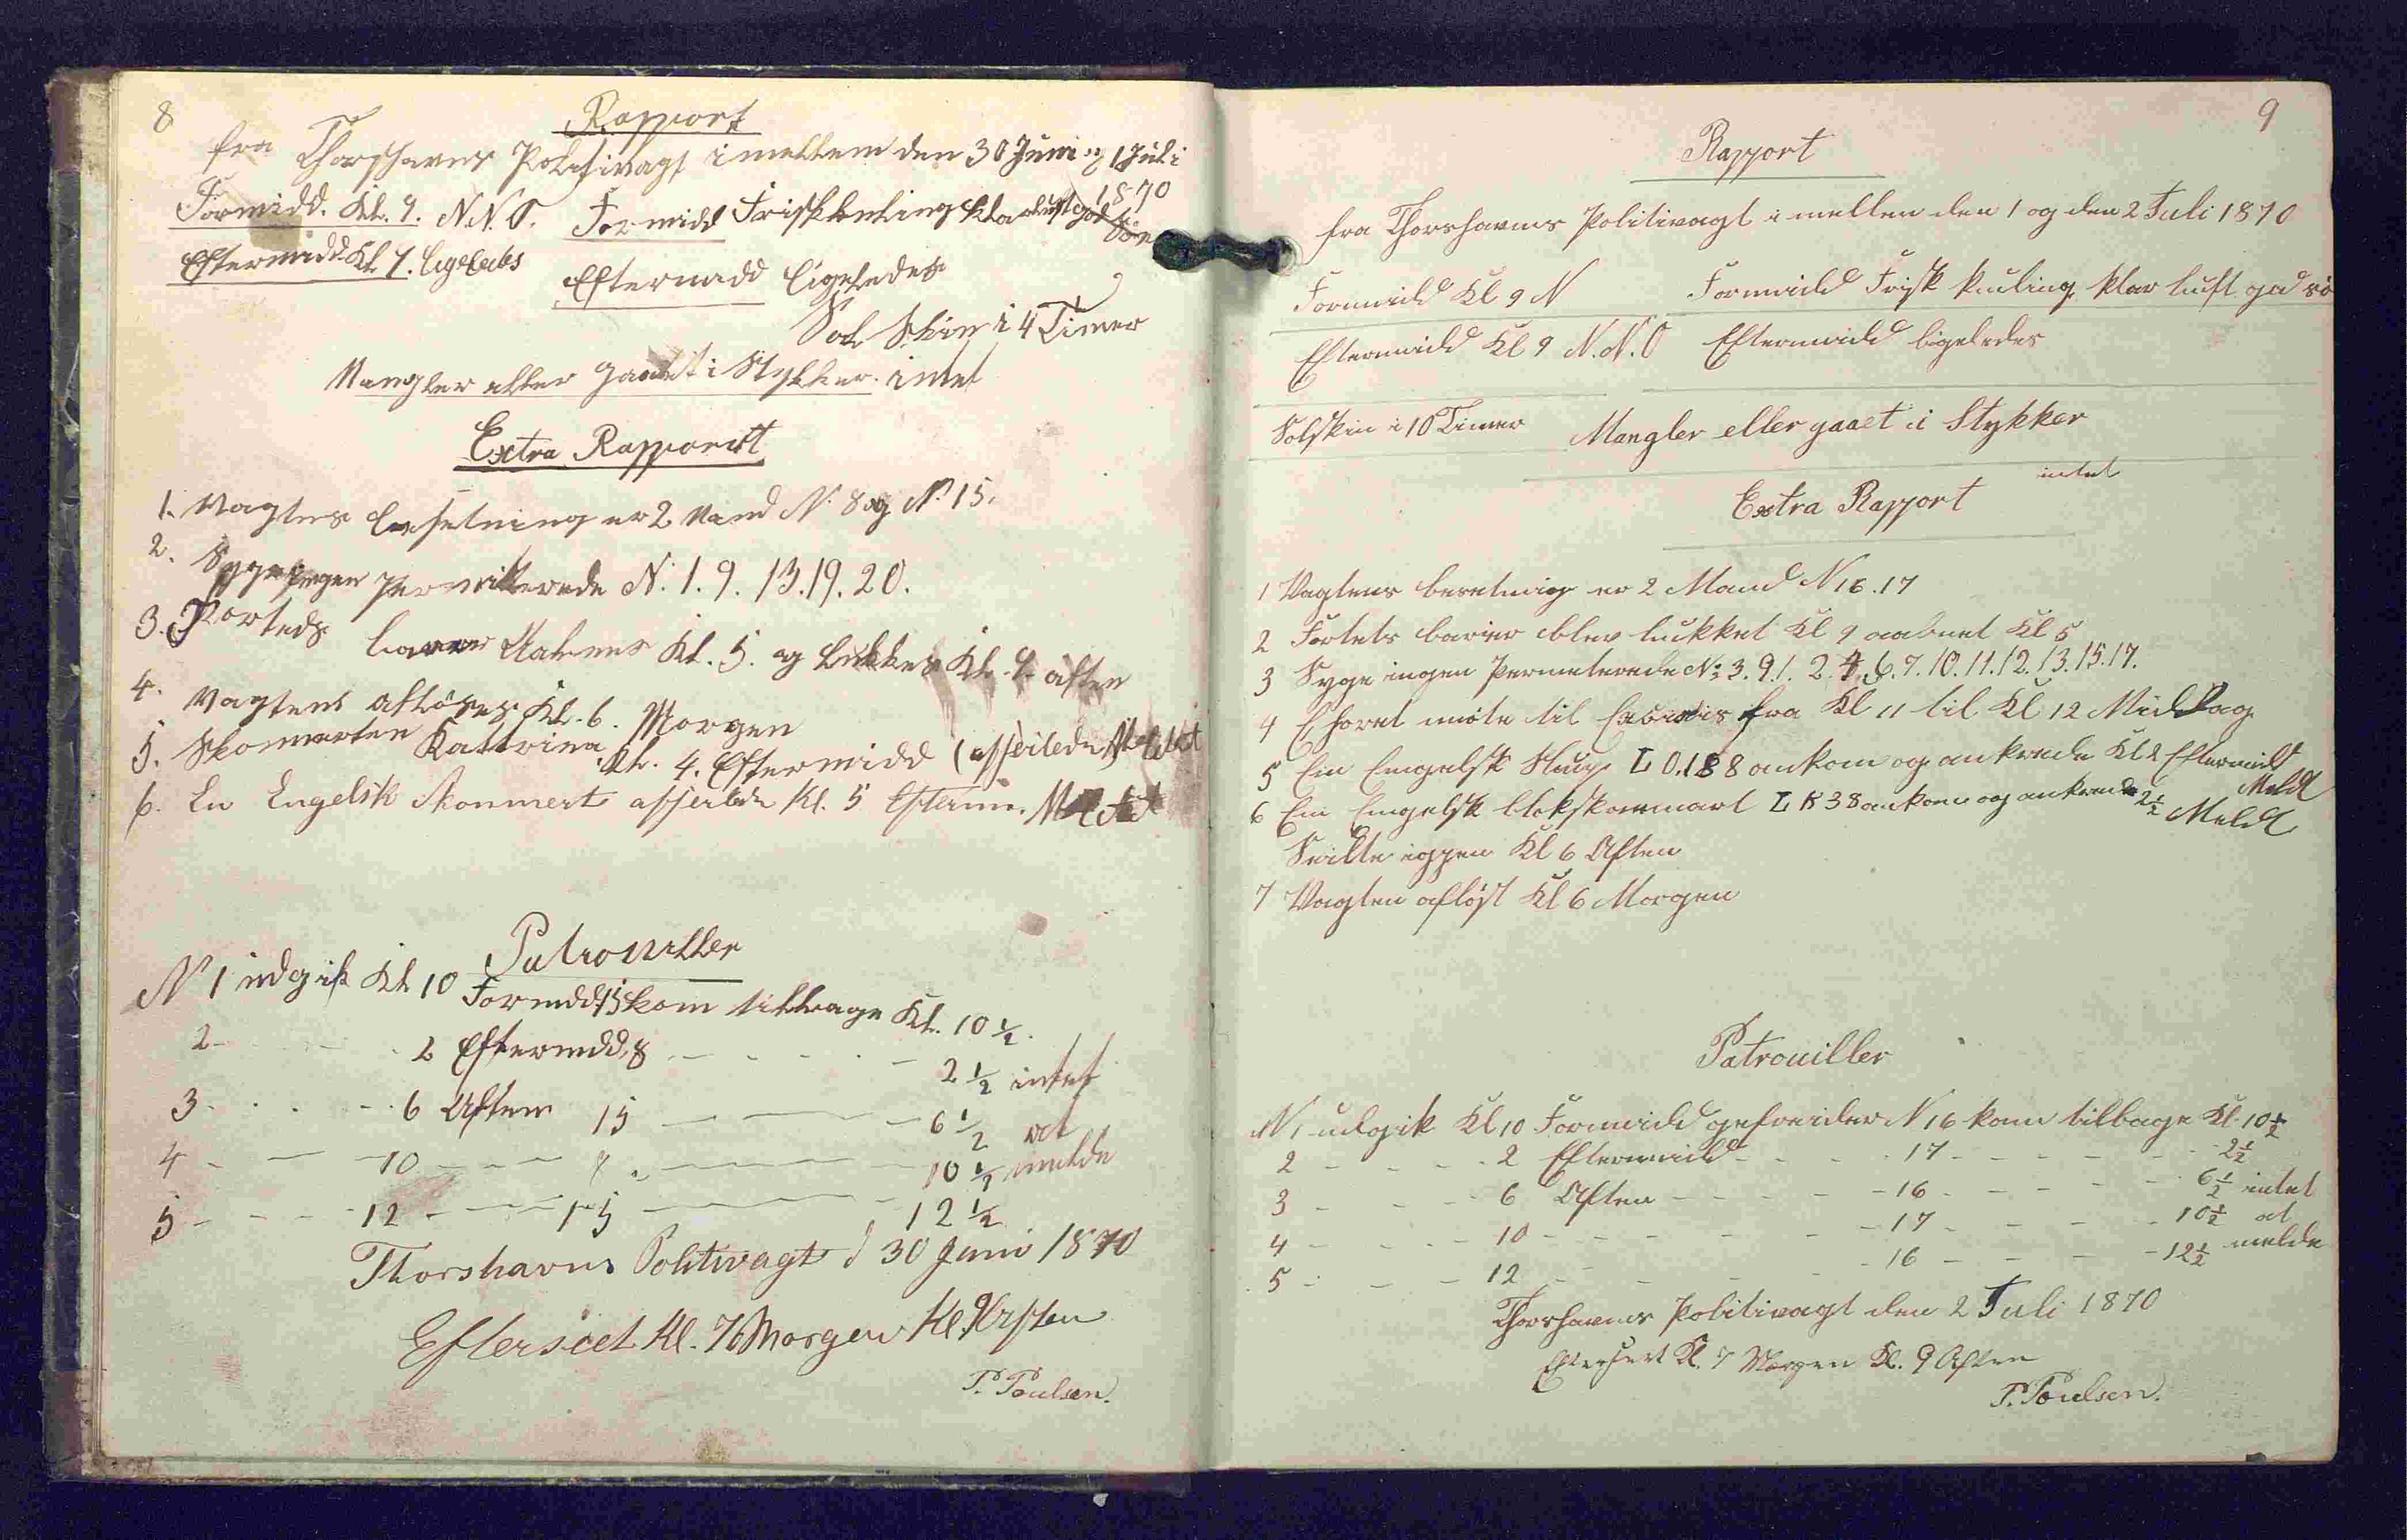 8
Rapport
fra Thorshavns Politivagt imellem den 30 Juni og 1 Juli
1870
Formidd. Kl. 9. N.N.O. Formidd Frisk kuling klar luft god Sö
Eftermidd Kl. 9. ligeledes Eftermidd ligeledes
Sol Skin i 4 Timer
Mangler eller gaaet i Stykker. intet
Extra Rapport
1. Vagtens besetning er 2 Mand N. 8 og N. 15.
2. Syge ingen Permitterede N. 1. 9. 13. 19. 20.
3. Porteds Kl. 5. og lukkes Kl. 9. aften
4. Vagtens aflöses Kl. 6. Morgen
5. Skonnerten Kattrina Kl. 4. Eftermidd (afseilede Meldt
6. En Engelsk Skonnert afseilede Kl. 5 Efterm. Meldt
Patrouiller
N 1 udgik Kl 10 Formidd 15 kom tilbage Kl. 10 ½.
2 - - - 2 Eftermidd. 8 - - - 2 ½ intet
3 - - - 6 Aften 15 - - - 6 ½ at
4 - - - 10 - - - 8 - - - 10 ½ melde
5 - - - 12 - - - 15 - - - 12 ½
Thorshavns Politivagt d 30 Juni 1870
Efterseet Kl. 7 Morgen Kl. 9 Aften
P. Poulsen.
9
Rapport
fra Thorshavns Politivagt imellen den 1 og den 2 Juli 1870
Formidd Kl 9 N Formidd Frisk kuling klar luft god sö
Eftermidd Kl 9 N.N.O Eftermidd ligeledes
Solskin i 10 Timer Mangler eller gaaet i Stykker
intet
Extra Rapport
1 Vagtens besetning er 2 Mand N 16. 17
2 Fortets barier blev lukket Kl 9 aabnet Kl 5
3 Syge ingen Permeterede No 3. 9. 1. 2. 4. 6. 7. 10. 11. 12. 13. 15. 17.
4 möte til fra Kl 11 til Kl 12 Middag
5 Ein Engelsk Slup L O. 188 ankom og ankrede Kl 2 Eftermidd
Meldt
6 Ein Engelsk skonnart L K 38 ankom og ankrede 2½ Meldt
Seilte iggen Kl 6 Aften
7 Vagten aflöst Kl 6 Morgen
Patrouiller
N 1 udgik Kl 10 Formidd N 16 kom tilbage Kl. 10 ½
2 - - - 2 Eftermidd - - - 17 - - - 2 ½
3 - - - 6 Aften - - - 16 - - - 6 ½ intet
4 - - - 10 - - - 17 - - - 10 ½ at
5 - - - 12 - - - 16 - - - 12 ½ melde
Thorshavns Politivagt den 2 Juli 1870
Efterseet Kl. 7 Morgen Kl. 9 Aften
P. Poulsen.